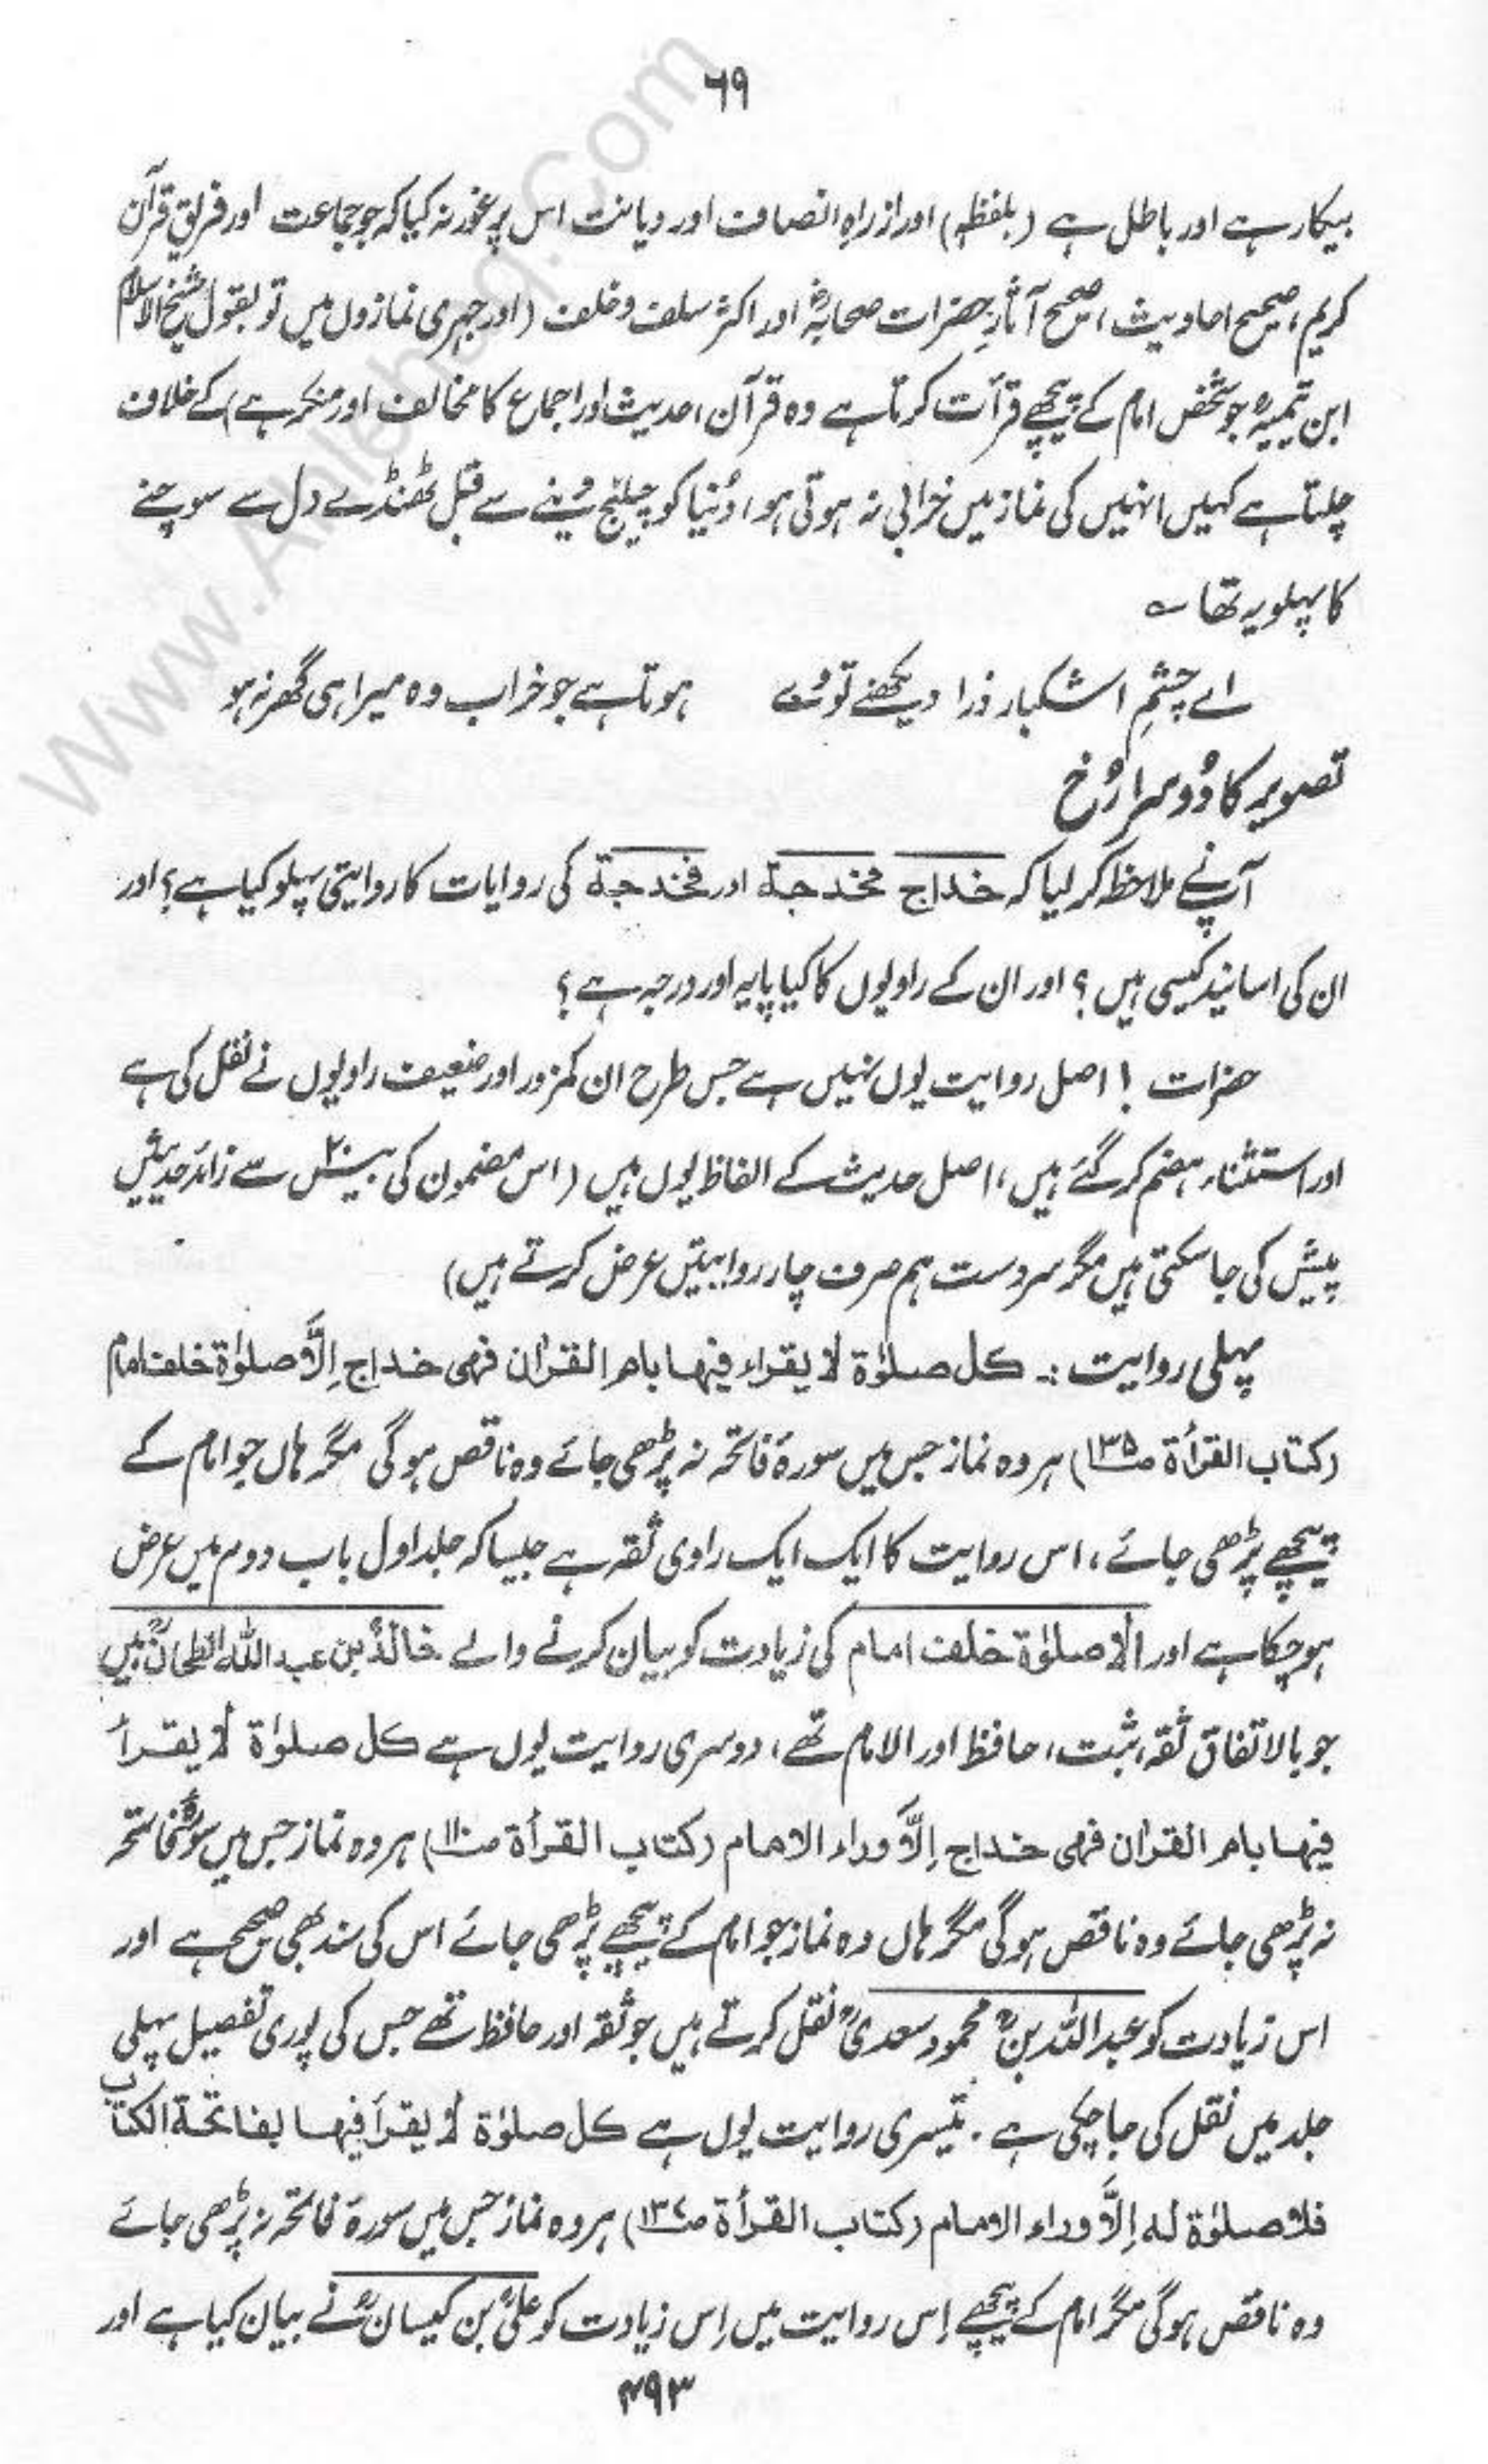 ۶۹
بیکار ہے اور باطل ہے (بلفظہٖ) اور از راہِ انصاف اور دیانت اس پر غور نہ کیا کہ جو جماعت اور فریق قرآن
کریم، صحیح احادیث، صحیح آثارِ حضرات صحابہؓ اور اکثر سلف و خلف (اور جہری نمازوں میں تو بقول شیخ الاسلام
ابن تیمیہؒ جو شخص امام کے پیچھے قرأت کرتا ہے وہ قرآن، حدیث اور اجماع کا مخالف اور منکر ہے) کے خلاف
چلتا ہے کہیں انہیں کی نماز میں خرابی نہ ہوتی ہو، دُنیا کو چیلنج دینے سے قبل ٹھنڈے دل سے سوچنے
کا پہلو یہ تھا ؎
اے چشمِ اشکبار ذرا دیکھنے تو دے ہوتا ہے جو خراب وہ میرا ہی گھر نہ ہو
تصویر کا دُوسرا رُخ
آپ نے ملاحظہ کر لیا کہ خداج مخدجۃ اور فخدجۃ کی روایات کا روایتی پہلو کیا ہے؟ اور
ان کی اسانید کیسی ہیں؟ اور ان کے راویوں کا کیا پایہ اور درجہ ہے؟
حضرات! اصل روایت یوں نہیں ہے جس طرح ان کمزور اور ضعیف راویوں نے نقل کی ہے
اور استثناء ہضم کر گئے ہیں، اصل حدیث کے الفاظ یوں ہیں (اس مضمون کی بیس۲۰ سے زائد حدیثیں
پیش کی جا سکتی ہیں مگر سردست ہم صرف چار روایتیں عرض کرتے ہیں)
پہلی روایت :۔ کل صلوٰۃ لا یقراء فیھا بام القراٰن فھی خداج اِلَّا صلوٰۃ خلف امام
(کتاب القرأۃ ص۱۳۵) ہر وہ نماز جس میں سورۂ فاتحہ نہ پڑھی جائے وہ ناقص ہو گی مگر ہاں جو امام کے
پیچھے پڑھی جائے، اس روایت کا ایک ایک راوی ثقہ ہے جیسا کہ جلد اول باب دوم میں عرض
ہو چکا ہے اور الا صلوٰۃ خلف امام کی زیادت کو بیان کرنے والے خالدؒ بن عبد اللہ الطحانؒ ہیں
جو بالاتفاق ثقہ، ثبت، حافظ اور الامام تھے، دوسری روایت یوں ہے کل صلوٰۃ لا یقرأ
فیھا بام القراٰن فھی خداج اِلَّا وراء الامام (کتاب القرأۃ ص۱۱۰) ہر وہ نماز جس میں سورۂ فاتحہ
نہ پڑھی جائے وہ ناقص ہو گی مگر ہاں وہ نماز جو امام کے پیچھے پڑھی جائے اس کی سند بھی صحیح ہے اور
اس زیادت کو عبداللہ بنؒ محمود سعدیؒ نقل کرتے ہیں جو ثقہ اور حافظ تھے جس کی پوری تفصیل پہلی
جلد میں نقل کی جا چکی ہے۔ تیسری روایت یوں ہے کل صلوٰۃ لا یقرأ فیھا بفاتحۃ الکتاب
فلا صلوٰۃ لہ اِلَّا وراء الامام (کتاب القرأۃ ص۱۳۷) ہر وہ نماز جس میں سورۂ فاتحہ نہ پڑھی جائے
وہ ناقص ہو گی مگر امام کے پیچھے اِس روایت میں اِس زیادت کو علیؒ بن کیسانؒ نے بیان کیا ہے اور
۴۹۳
www.Ahlehaq.Com